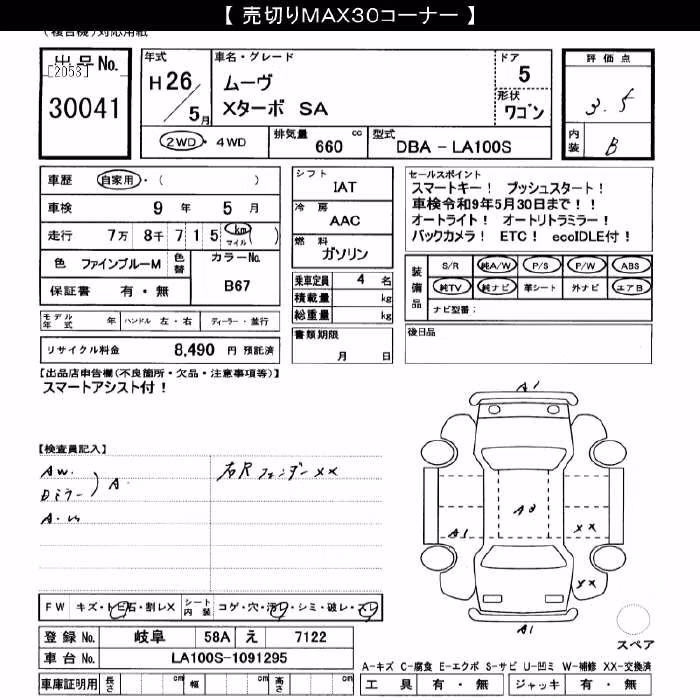 【 売切りMAX30コーナー 】
(複合機)対応用紙
出品No.
[2053]
30041
年式
H26/5月
車名・グレード
ムーヴ
Xターボ SA
ドア
5
形状
ワゴン
2WD・4WD
排気量 660 cc
型式 DBA－LA100S
評価点
3.5
内装
B
車歴 自家用・( )
車検 9年 5月
走行 7万 8千 7 1 5 km マイル ( )
色 ファインブルーM 色替
カラーNo.
B67
保証書 有・無
モデル年式 年 ハンドル 左・右 ディーラー・並行
リサイクル料金 8,490 円 預託済
シフト
IAT
冷房
AAC
燃料
ガソリン
乗車定員 4 名
積載量 kg
総重量 kg
書類期限
月 日
セールスポイント
スマートキー！ プッシュスタート！
車検令和9年5月30日まで！！
オートライト！ オートリトラミラー！
バックカメラ！ ETC！ ecoIDLE付！
装備品
S/R 純A/W P/S P/W ABS
純TV 純ナビ 革シート 外ナビ エアB
ナビ型番：
後日品
【出品店申告欄(不良箇所・欠品・注意事項等)】
スマートアシスト付！
【検査員記入】
AW.
Dミラー ) A.
右Rフェンダー XX
A1
A3
A1
XX
XX
A1
スペア
FW キズ・トビ石・割レX シート内装 コゲ・穴・汚レ・シミ・破レ・スレ
登録 No. 岐阜 58A え 7122
車台 No. LA100S-1091295
車庫証明用 長さ cm 幅 cm 高さ cm
A-キズ C-腐食 E-エクボ S-サビ U-凹ミ W-補修 XX-交換済
工具 有・無 ジャッキ 有・無